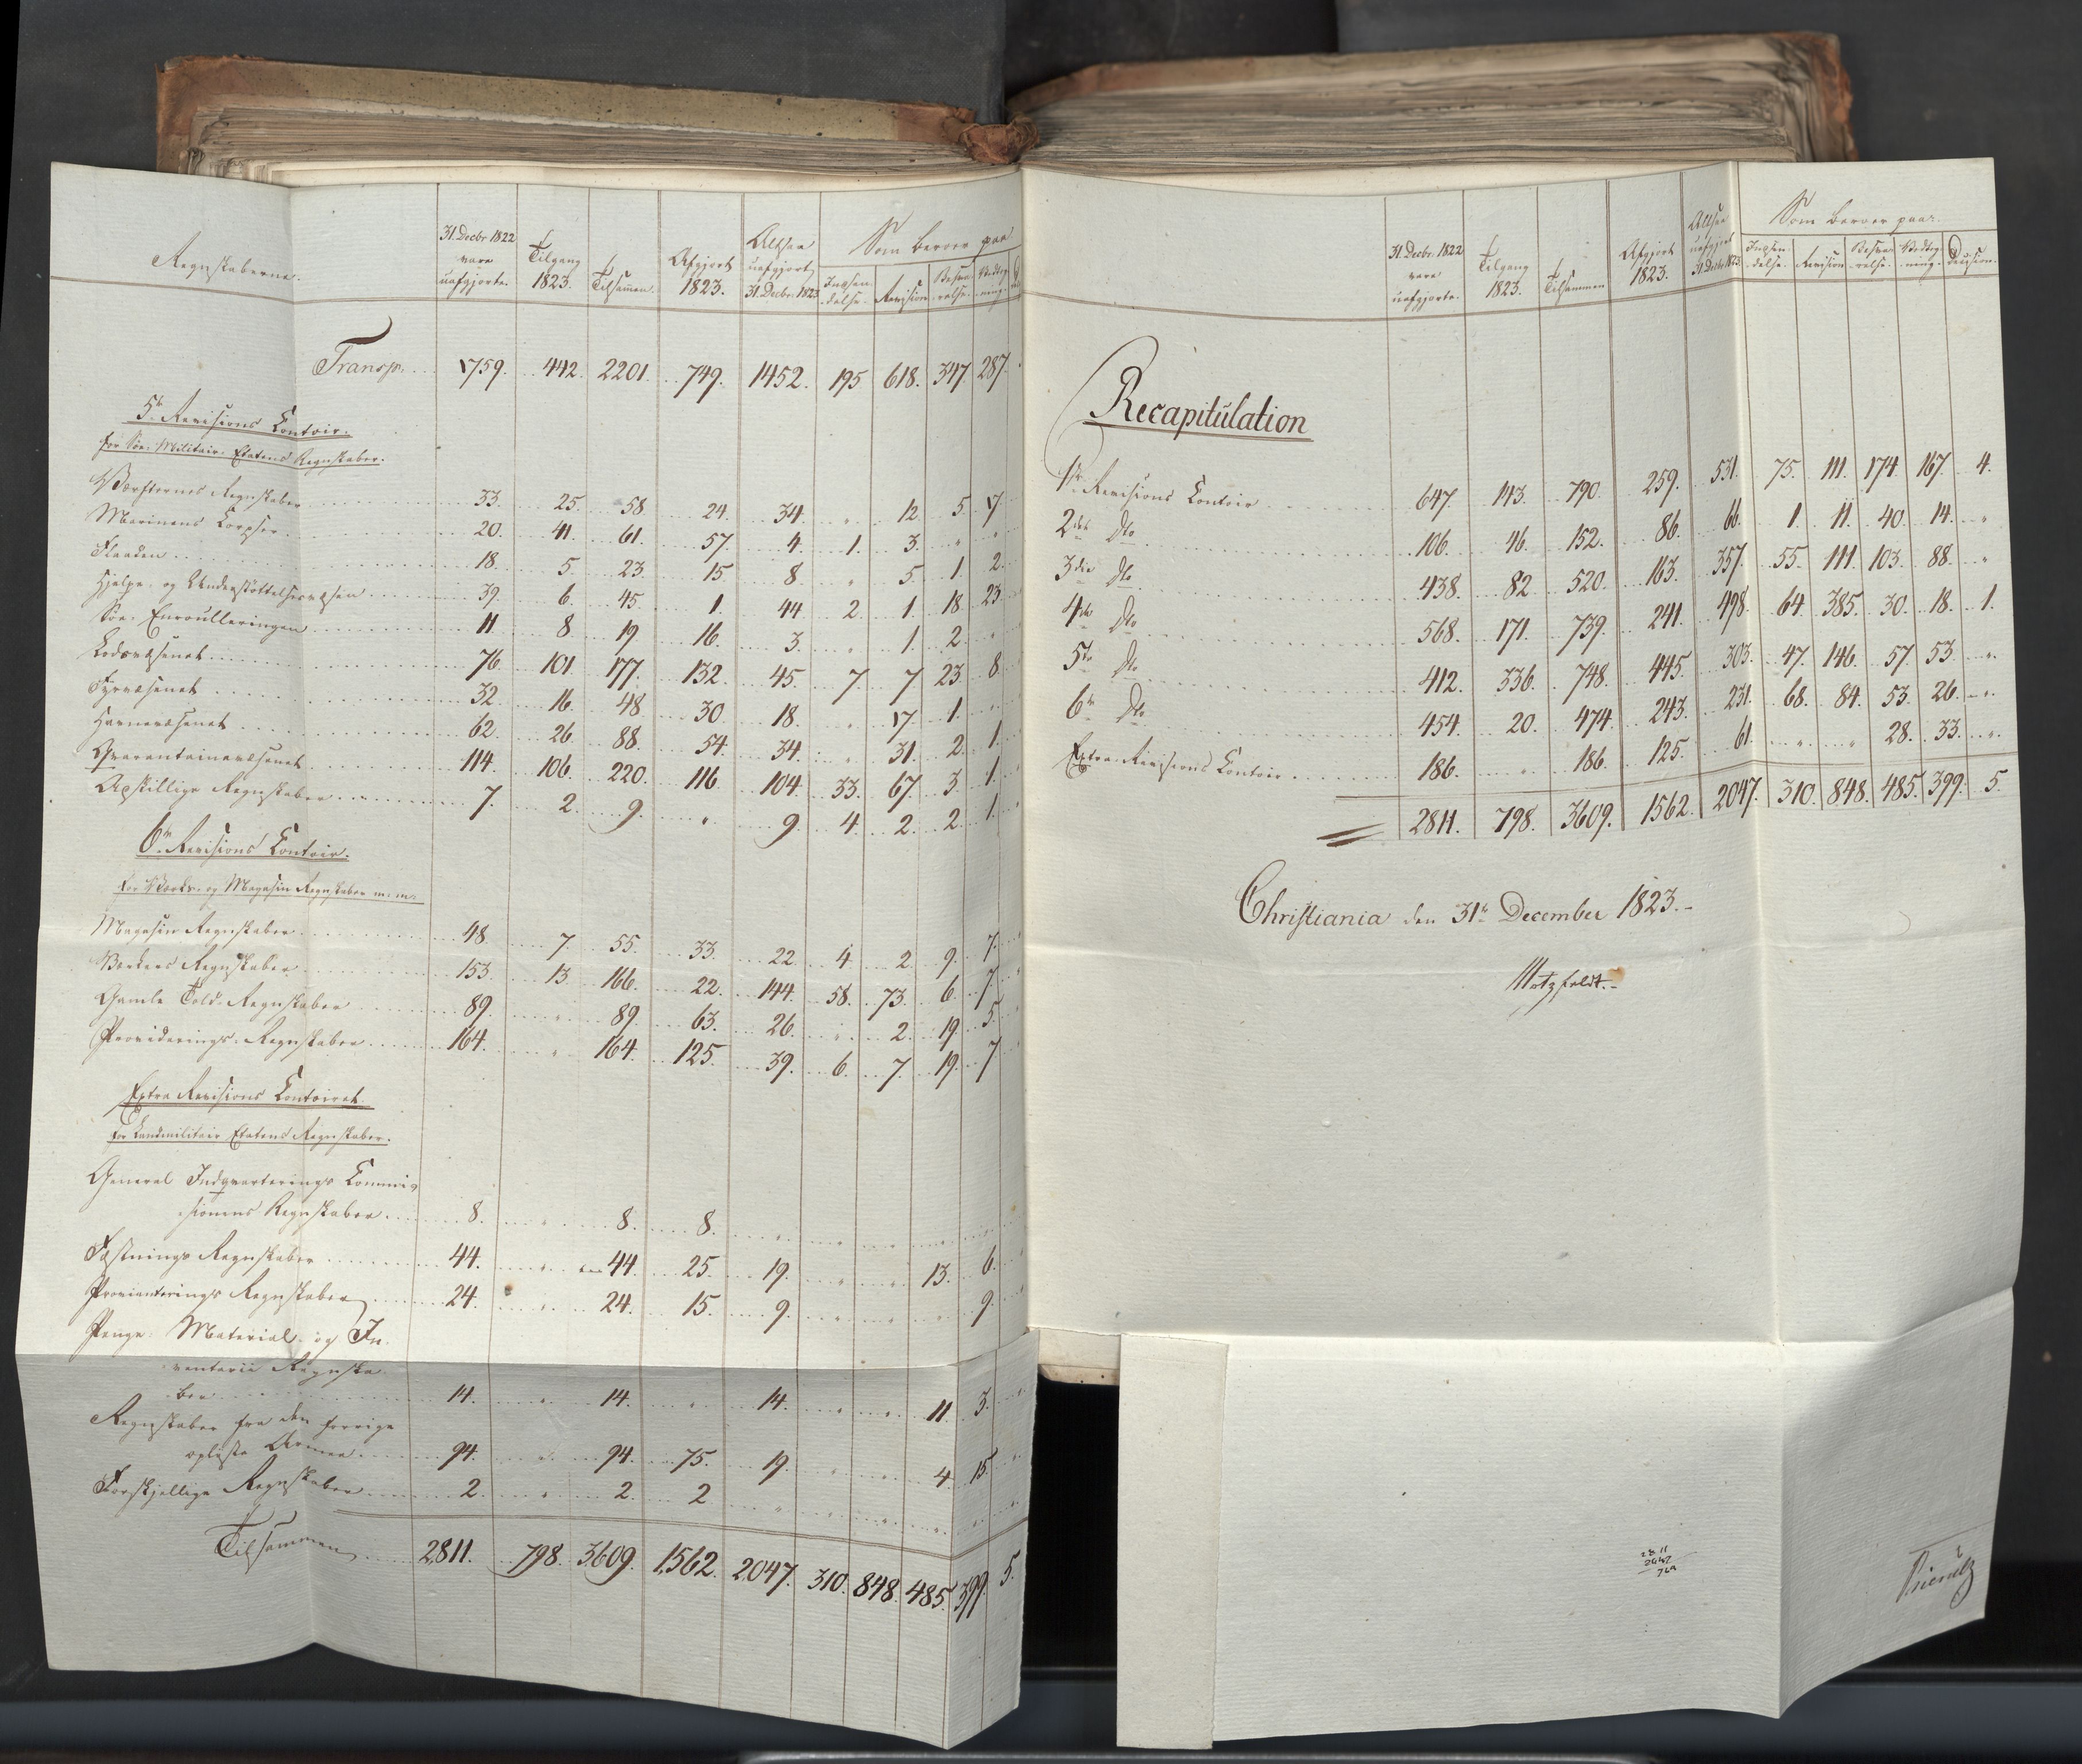 Regnskaberne. | 31. Decbr 1822 vare uafgjorte. | Tilgang 1823. | Tilsamen. | Afgjort 1823. | Altsaa uafgjort 31. Decbr. 1823 | Som beroer paa
Indsen-delse. | Revision | Besva-relse. | Vedteg-ning.
Transp. 1759. 442. 2201. 749. 1452. 195 618. 347. 287.
5te Revisions Contoir.
for Søe-Militair-Etatens Regnskaber.
Værfternes Regnskaber 33. 25. 58 24. 34. " 12. 5. 17.
Marinens Corpser 20. 41. 61. 57. 4. 1. 3. " "
Flaaden 18. 5. 23. 15. 8. " 5. 1. 2.
Hjelpe- og Understøttelsesvæsen 39. 6. 45. 1. 44. 2. 1. 18. 23.
Søe-Enroulleringen 11. 8. 19. 16. 3. " 1. 2. "
Lodsvæsenet 76. 101. 177. 132. 45. 7. 7. 23. 8.
Fyrvæsenet 32. 16. 48. 30. 18. " 17. 1. "
Havnevæsenet 62. 26. 88. 54. 34. " 31. 2. 1.
Qvarantainevæsenet 114. 106. 220. 116. 104. 33. 67. 3. 1.
Adskillige Regnskaber 7. 2. 9. " 9. 4. 2. 2. 1.
6te Revisions Contoir.
for Værks- og Magasin Regnskaber m: m:
Magasin Regnskaber 48. 7. 55. 33. 22. 4. 2. 9. 7.
Værkers Regnskaber 153. 13. 166. 22. 144. 58. 73. 6. 7.
Gamle Told-Regnskaber 89. " 89. 63. 26. " 2. 19. 5.
Provideerings-Regnskaber 164. " 164. 125. 39. 6. 7. 19. 7
Extra Revisions Contoiret.
for Landmilitair Etatens Regnskaber.
General Indqvarterings Commis-
sionens Regnskaber 8. " 8. 8. " " " " "
Fæstnings Regnskaber 44. " 44. 25. 19. " " 13. 6.
Provianterings Regnskaber 24. " 24. 15. 9. " " " 9.
Penge- Material- og In-
ventarii Regnska-
ber 14. " 14. " 14. " " 11. 3.
Regnskaber fra den forrige
opløste Armee 94. " 94. 75. 19. " " 4. 15.
Forskjellige Regnskaber 2. " 2. 2 " " " " "
Tilsammen 2811. 798. 3609. 1562. 2047. 310. 848. 485. 399. 5.
31. Decbr. 1822 vare uafgjorte. | Tilgang 1823. | Tilsammen | Afgjort 1823. | Altsaa uafgjort 31 Decbr 1823 | Som beroer paa.
Indsen-delse. | Revision | Besva-relse. | Vedteg-ning. | Decision.
Recapitulation
1ste Revisions Contoir 647. 143. 790. 259. 531. 75. 111. 174. 167. 4.
2det Do 106. 46. 152. 86. 66. 1. 11. 40. 14. "
3die Do 438. 82. 520. 163. 357. 55. 111. 103. 88. "
4de Do 568. 171. 739. 241. 498. 64. 385. 30. 18. 1.
5te Do 412. 336. 748. 445. 303. 47. 146. 57. 53. "
6te Do 454. 20. 474. 243. 231. 68. 84. 53. 26. "
Extra-Revisions Contoir 186. " 186. 125. 61. " " 28. 33. "
2811. 798. 3609. 1562. 2047. 310. 848. 485. 399. 5.
Christiania den 31te December 1823.
Motzfeldt.
2811
2047
764